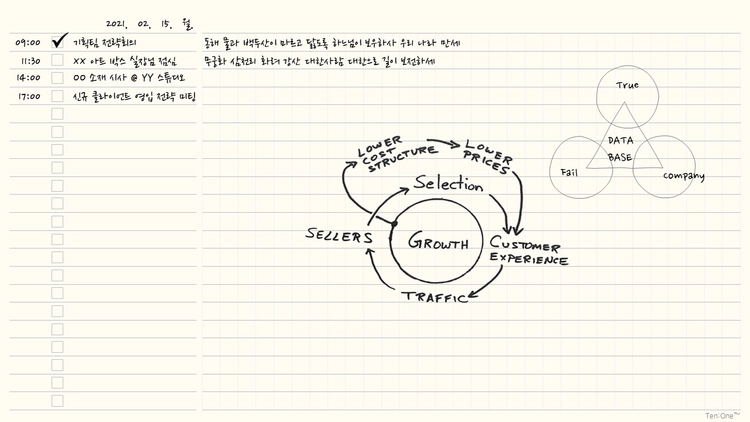 2021. 02. 15. 월
09:00 기획팀 전략회의
11:30 XX 아트 박스 실장님 점심
14:00 OO 소재 시사 @ YY 스튜디오
17:00 신규 클라이언트 영입 전략 미팅
동해 물과 백두산이 마르고 닳도록 하느님이 보우하사 우리 나라 만세
무궁화 삼천리 화려 강산 대한사람 대한으로 길이 보전하세
LOWER
COST
STRUCTURE
LOWER
PRICES
Selection
SELLERS
GROWTH
CUSTOMER
EXPERIENCE
TRAFFIC
True
DATA
BASE
Fail
company
Ten:One™